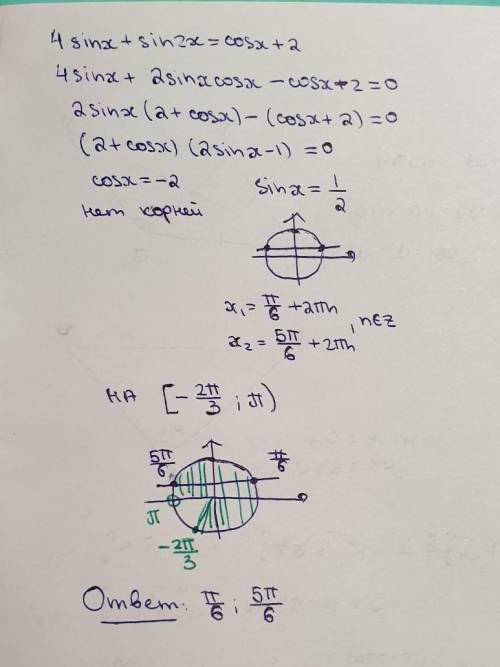 4 sinx + sin2x = cosx + 2
4 sinx + 2sinxcosx - cosx - 2 = 0
2sinx (2 + cosx) - (cosx + 2) = 0
(2 + cosx) (2sinx - 1) = 0
cosx = -2 sinx = 1/2
нет корней
x₁ = π/6 + 2πn
x₂ = 5π/6 + 2πn, n∈Z
НА [-2π/3 ; π)
5π/6 π/6
π
-2π/3
Ответ: π/6 ; 5π/6